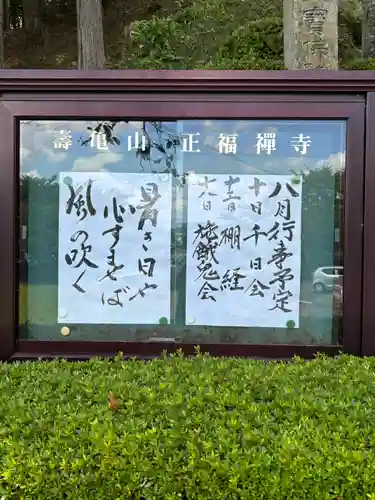 壽亀山 正福禪寺
八月行事予定
十日 千日会
十三日 棚経
十八日 施餓鬼会
暑き日や
心すませば
風の吹く